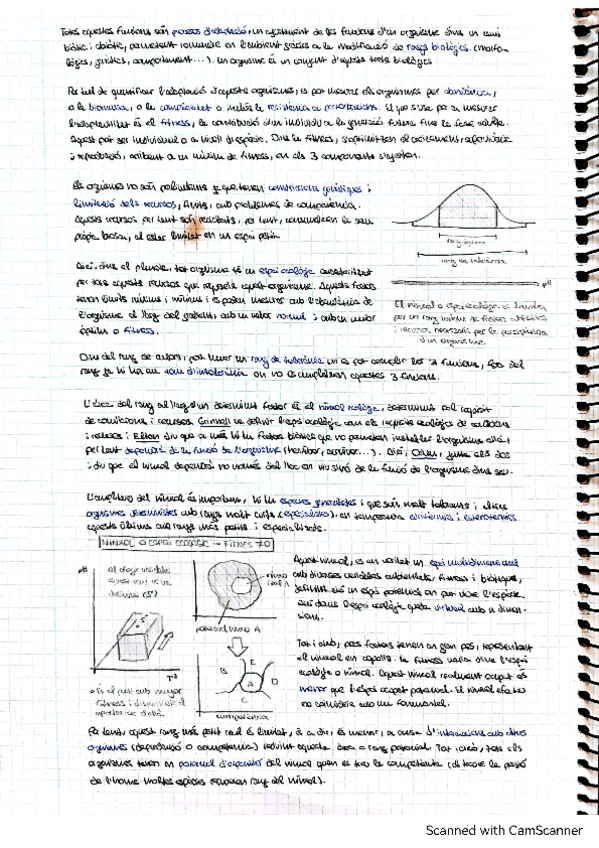 Totes aquestes funcions són processos d'adaptació, un ajustament de les funcions d'un organisme dins un camí
biòtic i abiòtic, permetent romandre en l'ambient gràcies a la modificació de rangs biològics. (morfo-
lògics, genètics, comportament...). Un organisme és un conjunt d'aquests trets biològics
Per tal de quantificar l'adaptació d'aquests organismes, es pot mesurar els organismes per abundància,
a la biomassa, o la complexitat o inclús la resistència a pertorbacions. El que s'usa per a mesurar
l'adaptabilitat és el fitness, la contribució d'un individu a la generació futura fins la fase adulta.
Aquest pot ser individual o a nivell d'espècie. Dins la fitness, s'optimitzen el creixement, supervivència
i reproducció, arribant a un màxim de fitness, on els 3 components s'ajusten.
Els organismes no són perfectes ja que tenen constriccions genètiques i
limitació dels recursos, finits, amb problemes de competència.
Aquests recursos per tant són per tant, comencen en seu
pròpia biomassa, al estar limitat en un espai petit.
rang òptim
rang de tolerància
Així, dins el planeta, tot organisme té un espai ecològic caracteritzat
per tots aquests recursos que requereix aquest organisme. Aquests factors
tenen límits mínims i màxims i es poden mesurar amb l'abundància de
l'organisme al llarg del gradient, amb un valor normal i amb un valor
òptim o fitness.
pH
El nínxol o espai ecològic és limitat
per un rang mínim de factors, condicions
i recursos necessaris per la persistència
d'un organisme.
Dins del rang de valors, pot haver un rang de tolerància on es pot complir les 3 funcions, fora del
rang ja hi ha una zona d'intolerància on no es compleixen aquestes 3 funcions.
L'àrea del rang al llarg d'un determinat factor és el nínxol ecològic, determinat pel requisit
de condicions i recursos. Grinnell va definir l'espai ecològic com els requisits ecològics de condicions
i recursos i Elton diu que a més hi ha factors biòtics que no permeten instal·lar l'organisme allà i
per tant dependrà de la funció de l'organisme (herbívor, carnívor...). Així, Odum, junta els dos
i diu que el nínxol dependrà no només del lloc on viu sinó de la funció de l'organisme dins seu.
L'amplitud del nínxol és important, hi ha espècies generalistes i que són molt tolerants i altres
organismes amb rangs molt curts (especialistes). en temperatura euritèrmics i estenotèrmics
aquests últims amb rangs més petits i especialitzats.
NÍNXOL O ESPAI ECOLÒGIC → FITNESS ≥ 0
pH
al afegir variables
aquest rang es va
definint (5º)
Tª
o És el punt amb major
fitness i disminueix al
apartar-se d'allà.
nínxol
real A
potencial nínxol A
B
E
A
D
C
competència
Aquest nínxol, és en realitat un espai multidimensional
amb diverses variables ambientals, fitness i biòtiques,
definint així un espai potencial on pot viure l'espècie.
Així doncs l'espai ecològic queda vinculat amb n dimen-
sions.
Tot i amb, pocs factors tenen un gran pes, representant
el nínxol en capells. La fitness varia dins l'espai
ecològic o nínxol. Aquest nínxol realment ocupat és
menor que l'espai ocupat potencial. El nínxol efectiu
no coincideix amb un fonamental.
Per tant, aquest rang més petit real és limitat, és a dir és menor, a causa d'interaccions amb altres
organismes (depredació o competència) reduint aquesta àrea o rang potencial. Tot i això, tots els
organismes tenen un potencial d'expansió del nínxol quan es treu la competència (al treure la pressió
de l'home moltes espècies recuperen rang del nínxol).
Scanned with CamScanner